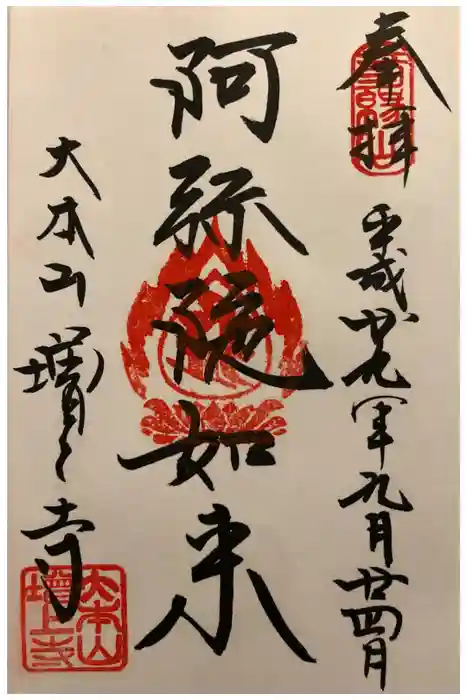 奉拝
平成廿九年九月廿四日
阿弥陀如来
大本山増上寺
大本山
増上寺